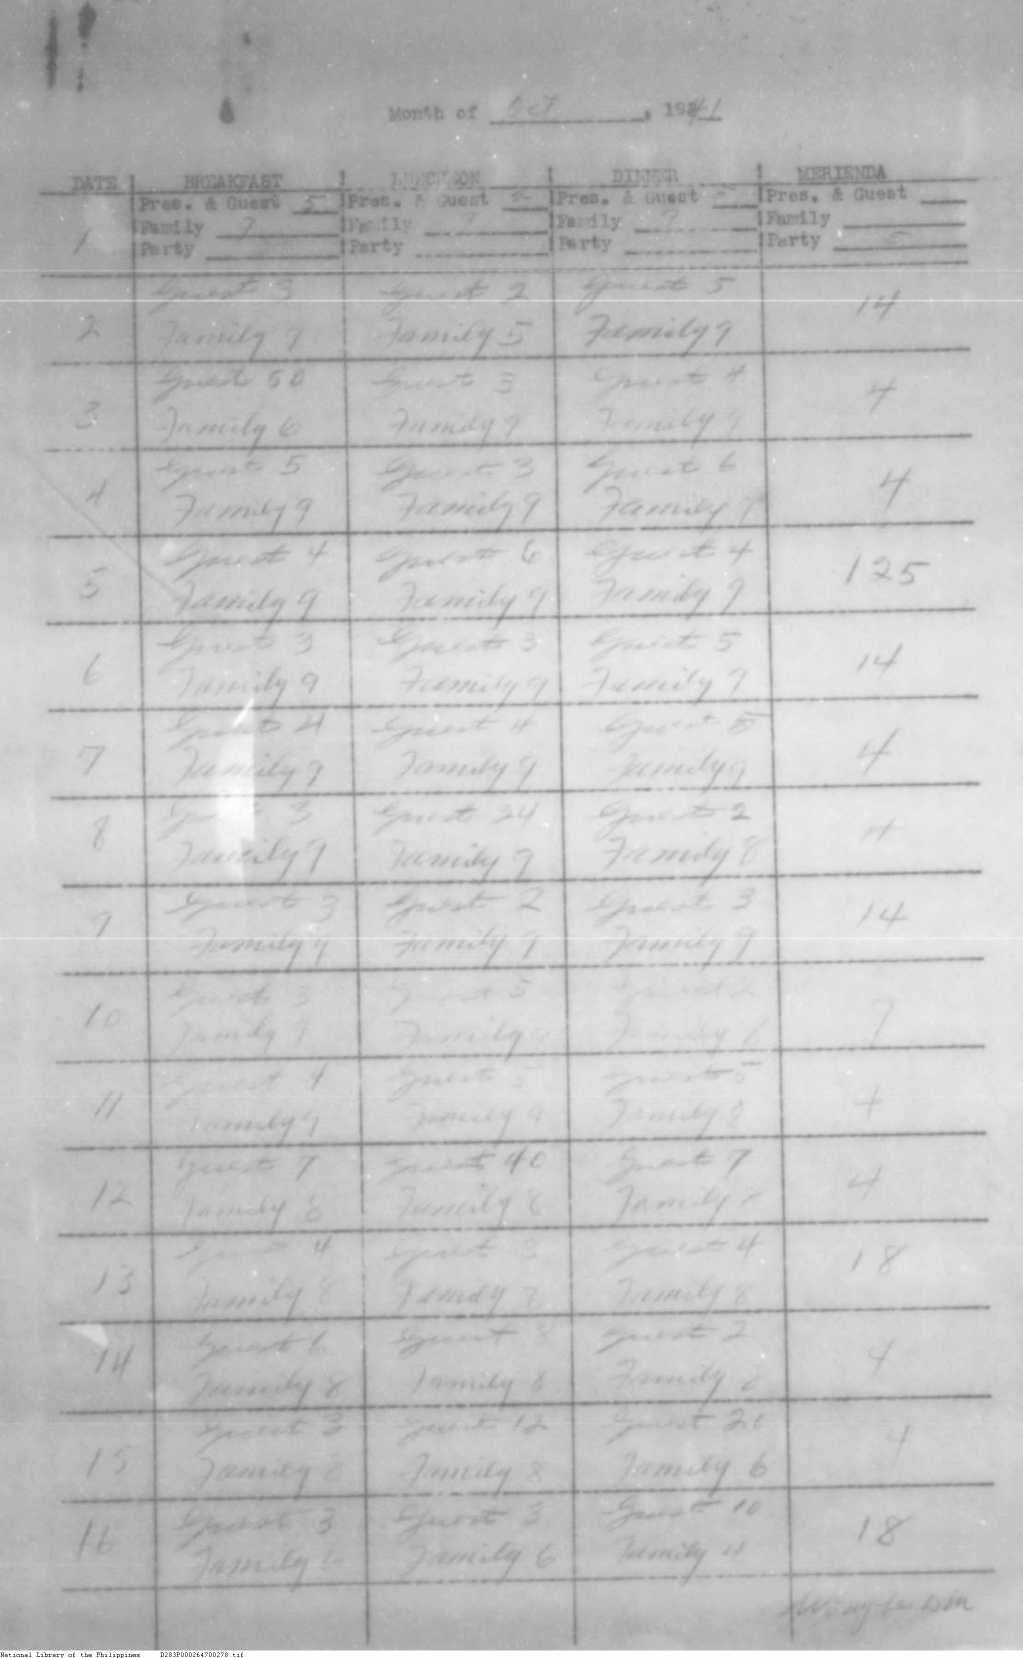 Month of Oct, 1941
DATE BREAKFAST LUNCHEON DINNER MERIENDA
Pres. & Guest 5 Pres. & Guest Pres. & Guest Pres. & Guest
1 Family 7 Family 7 Family 7 Family
Party Party Party Party 5
Guest 3 Guest 2 Guest 5 14
2 Family 9 Family 5 Family 9
Guest 50 Guest 3 Guest 4 4
3 Family 6 Family 9 Family 9
Guest 5 Guest 3 Guest 6 4
4 Family 9 Family 9 Family 9
Guest 4 Guest 6 Guest 4 125
5 Family 9 Family 9 Family 9
Guest 3 Guest 3 Guest 5 14
6 Family 9 Family 9 Family 9
Guest 4 Guest 4 Guest 5 4
7 Family 9 Family 9 Family 9
3 Guest 24 Guest 2 4
8 Family 9 Family 9 Family 8
Guest 3 Guest 2 Guest 3 14
9 Family 9 Family 9 Family 9
Guest 3 Guest 5 Guest 2
10 Family 9 Family Family 7
Guest 4 Guest 5 Guest 5 4
11 Family 9 Family 9 Family 8
Guest 7 Guest 40 Guest 7 4
12 Family 8 Family 8 Family 8
Guest 4 Guest 3 Guest 4 18
13 Family 8 Family 8 Family 8
Guest 6 Guest 8 Guest 2 4
14 Family 8 Family 8 Family 8
Guest 3 Guest 12 Guest 20 4
15 Family 8 Family 8 Family 6
Guest 3 Guest 3 Guest 10 18
16 Family 6 Family 6 Family 4
National Library of the Philippines D283P000264700278.tif